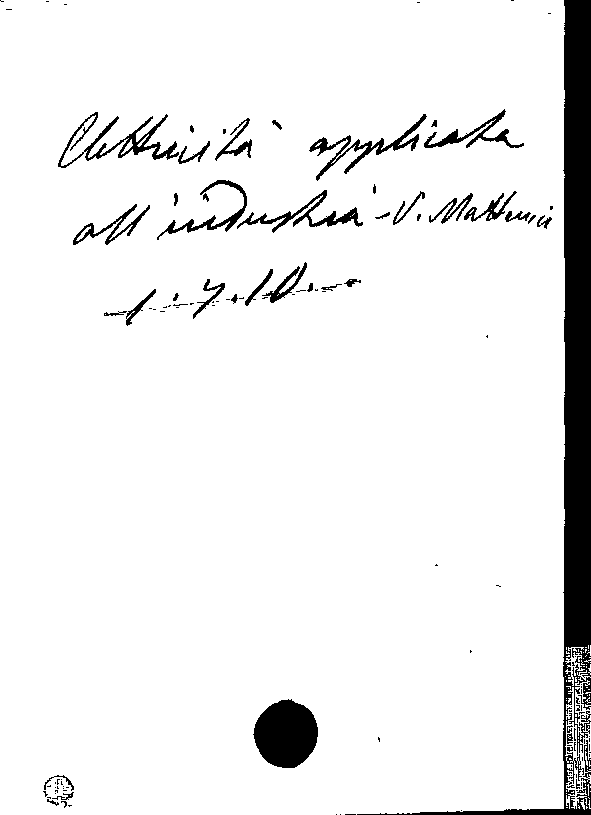 Elettricità applicata
all'industria - V. Matteucci
1.7.10.